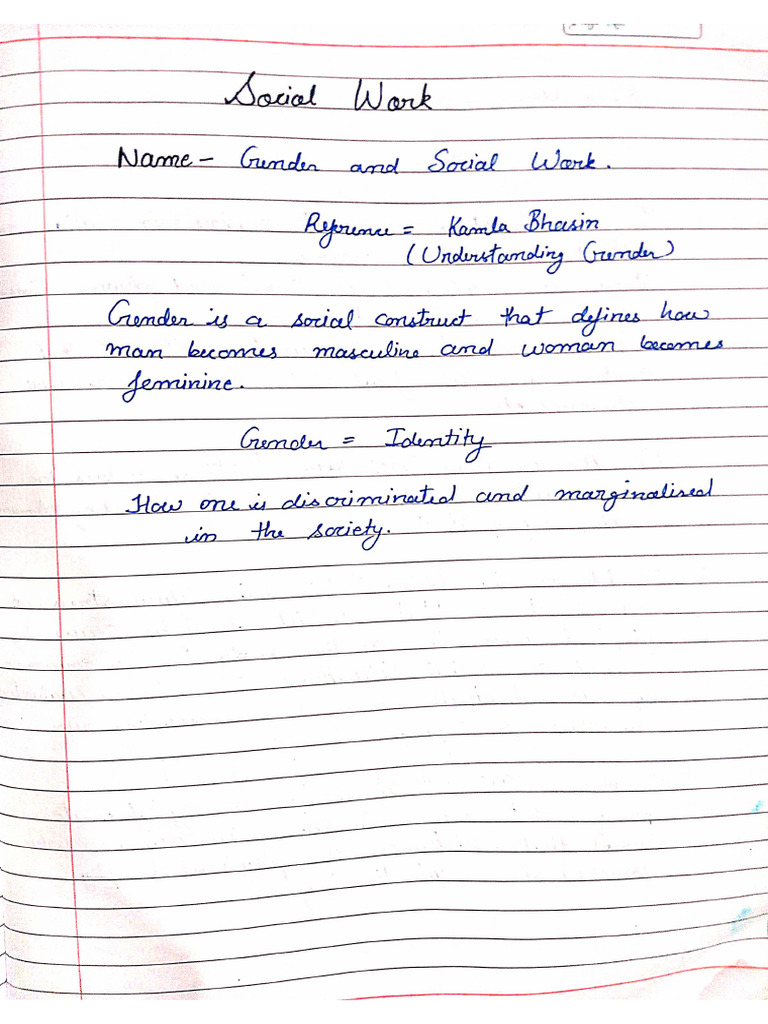 Social Work
Name - Gender and Social Work.
Reference = Kamla Bhasin
(Understanding Gender)
Gender is a social construct that defines how
man becomes masculine and woman becomes
feminine.
Gender = Identity
How one is discriminated and marginalised
in the society.